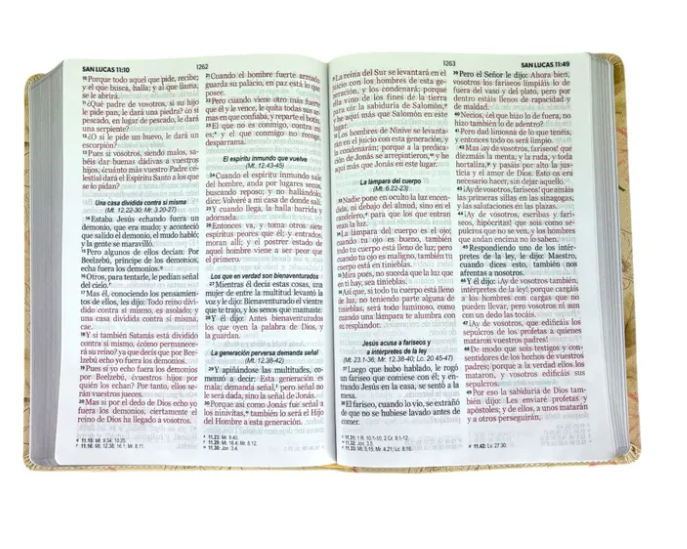 SAN LUCAS 11:10
1262
¹⁰Porque todo aquel que pide, recibe;
y el que busca, halla; y al que llama,
se le abrirá.
¹¹¿Qué padre de vosotros, si su hijo
le pide pan, le dará una piedra? ¿o si
pescado, en lugar de pescado, le dará
una serpiente?
¹²¿O si le pide un huevo, le dará un
escorpión?
¹³Pues si vosotros, siendo malos, sa-
béis dar buenas dádivas a vuestros
hijos, ¿cuánto más vuestro Padre ce-
lestial dará el Espíritu Santo a los que
se lo pidan?
Una casa dividida contra sí misma
(Mt. 12.22-30; Mr. 3.20-27)
¹⁴Estaba Jesús echando fuera un
demonio, que era mudo; y aconteció
que salido el demonio, el mudo habló;
y la gente se maravilló.
¹⁵Pero algunos de ellos decían: Por
Beelzebú, príncipe de los demonios,
echa fuera los demonios.
¹⁶Otros, para tentarle, le pedían señal
del cielo.
¹⁷Mas él, conociendo los pensamien-
tos de ellos, les dijo: Todo reino divi-
dido contra sí mismo, es asolado; y
una casa dividida contra sí misma,
cae.
¹⁸Y si también Satanás está dividido
contra sí mismo, ¿cómo permane-
cerá su reino? ya que decís que por Bee-
lzebú echo yo fuera los demonios.
¹⁹Pues si yo echo fuera los demonios por
Beelzebú, ¿vuestros hijos por
quién los echan? Por tanto, ellos se-
rán vuestros jueces.
²⁰Mas si por el dedo de Dios echo yo
fuera los demonios, ciertamente el
reino de Dios ha llegado a vosotros.
²¹Cuando el hombre fuerte armado
guarda su palacio, en paz está lo que
posee.
²²Pero cuando viene otro más fuerte
que él y le vence, le quita todas sus ar-
mas en que confiaba, y reparte el botín.
²³El que no es conmigo, contra mí
es; y el que conmigo no recoge,
desparrama.
El espíritu inmundo que vuelve
(Mt. 12.43-45)
²⁴Cuando el espíritu inmundo sale
del hombre, anda por lugares secos,
buscando reposo; y no hallándolo,
dice: Volveré a mi casa de donde salí.
²⁵Y cuando llega, la halla barrida y
adornada.
²⁶Entonces va, y toma otros siete
espíritus peores que él; y entrados,
moran allí; y el postrer estado de
aquel hombre viene a ser peor que
el primero.
Los que en verdad son bienaventurados
²⁷Mientras él decía estas cosas, una
mujer de entre la multitud levantó la
voz y le dijo: Bienaventurado el vientre
que te trajo, y los senos que mamaste.
²⁸Y él dijo: Antes bienaventurados
los que oyen la palabra de Dios, y
la guardan.
La generación perversa demanda señal
(Mt. 12.38-42)
²⁹Y apiñándose las multitudes, co-
menzó a decir: Esta generación es
mala; demanda señal, pero señal no
le será dada, sino la señal de Jonás.
³⁰Porque así como Jonás fue señal a
los ninivitas, también lo será el Hijo
del Hombre a esta generación.
1263
SAN LUCAS 11:49
³¹La reina del Sur se levantará en el
juicio con los hombres de esta ge-
neración, y los condenará; porque
ella vino de los fines de la tierra
para oír la sabiduría de Salomón,
y he aquí más que Salomón en este
lugar.
³²Los hombres de Nínive se levantarán
en el juicio con esta generación, y
la condenarán; porque a la predica-
ción de Jonás se arrepintieron, y he
aquí más que Jonás en este lugar.
La lámpara del cuerpo
(Mt. 6.22-23)
³³Nadie pone en oculto la luz encen-
dida, ni debajo del almud, sino en el
candelero, para que los que entran
vean la luz.
³⁴La lámpara del cuerpo es el ojo;
cuando tu ojo es bueno, también
todo tu cuerpo está lleno de luz; pero
cuando tu ojo es maligno, también tu
cuerpo está en tinieblas.
³⁵Mira pues, no suceda que la luz que
en ti hay, sea tinieblas.
³⁶Así que, si todo tu cuerpo está lleno
de luz, no teniendo parte alguna de
tinieblas, será todo luminoso, como
cuando una lámpara te alumbra con
su resplandor.
Jesús acusa a fariseos y
a intérpretes de la ley
(Mt. 23.1-36; Mr. 12.38-40; Lc. 20.45-47)
³⁷Luego que hubo hablado, le rogó
un fariseo que comiese con él; y en-
trando Jesús en la casa, se sentó a la
mesa.
³⁸El fariseo, cuando lo vio, se extrañó
de que no se hubiese lavado antes de
comer.
³⁹Pero el Señor le dijo: Ahora bien,
vosotros los fariseos limpiáis lo de
fuera del vaso y del plato, pero por
dentro estáis llenos de rapacidad y
de maldad.
⁴⁰Necios, ¿el que hizo lo de fuera, no
hizo también lo de adentro?
⁴¹Pero dad limosna de lo que tenéis,
y entonces todo os será limpio.
⁴²Mas ¡ay de vosotros, fariseos! que
diezmáis la menta, y la ruda, y toda
hortaliza, y pasáis por alto la jus-
ticia y el amor de Dios. Esto os era
necesario hacer, sin dejar aquello.
⁴³¡Ay de vosotros, fariseos! que amáis
las primeras sillas en las sinagogas,
y las salutaciones en las plazas.
⁴⁴¡Ay de vosotros, escribas y fari-
seos, hipócritas! que sois como se-
pulcros que no se ven, y los hombres
que andan encima no lo saben.
⁴⁵Respondiendo uno de los intér-
pretes de la ley, le dijo: Maestro,
cuando dices esto, también nos
afrentas a nosotros.
⁴⁶Y él dijo: ¡Ay de vosotros también,
intérpretes de la ley! porque cargáis
a los hombres con cargas que no
pueden llevar, pero vosotros ni aun
con un dedo las tocáis.
⁴⁷¡Ay de vosotros, que edificáis los
sepulcros de los profetas a quienes
mataron vuestros padres!
⁴⁸De modo que sois testigos y con-
sentidores de los hechos de vuestros
padres; porque a la verdad ellos los
mataron, y vosotros edificáis sus
sepulcros.
⁴⁹Por eso la sabiduría de Dios tam-
bién dijo: Les enviaré profetas y
apóstoles; y de ellos, a unos matarán
y a otros perseguirán;